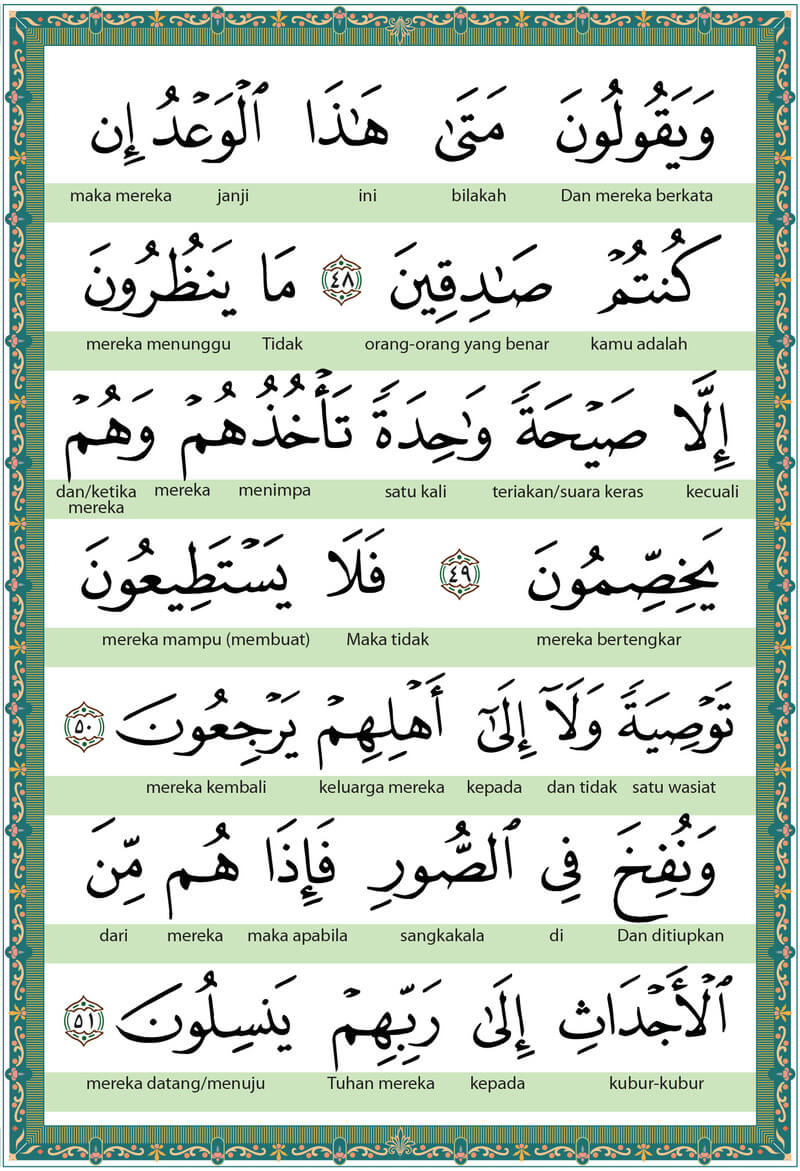 وَيَقُولُونَ مَتَىٰ هَـٰذَا ٱلْوَعْدُ إِن
maka mereka janji ini bilakah Dan mereka berkata
كُنتُمْ صَـٰدِقِينَ ٤٨ مَا يَنظُرُونَ
mereka menunggu Tidak orang-orang yang benar kamu adalah
إِلَّا صَيْحَةً وَٰحِدَةً تَأْخُذُهُمْ وَهُمْ
dan/ketika mereka menimpa satu kali teriakan/suara keras kecuali
mereka
يَخِصِّمُونَ ٤٩ فَلَا يَسْتَطِيعُونَ
mereka mampu (membuat) Maka tidak mereka bertengkar
تَوْصِيَةً وَلَآ إِلَىٰٓ أَهْلِهِمْ يَرْجِعُونَ ٥٠
mereka kembali keluarga mereka kepada dan tidak satu wasiat
وَنُفِخَ فِى ٱلصُّورِ فَإِذَا هُم مِّنَ
dari mereka maka apabila sangkakala di Dan ditiupkan
ٱلْأَجْدَاثِ إِلَىٰ رَبِّهِمْ يَنسِلُونَ ٥١
mereka datang/menuju Tuhan mereka kepada kubur-kubur